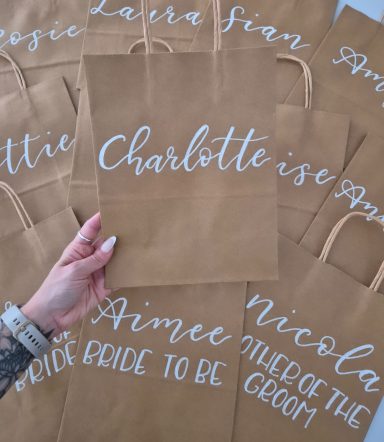 osie
Laura
Sian
Am
ttie
Charlotte
ise
Aimee
BRIDE TO BE
BRIDE
Nicola
OTHER OF THE
GROOM